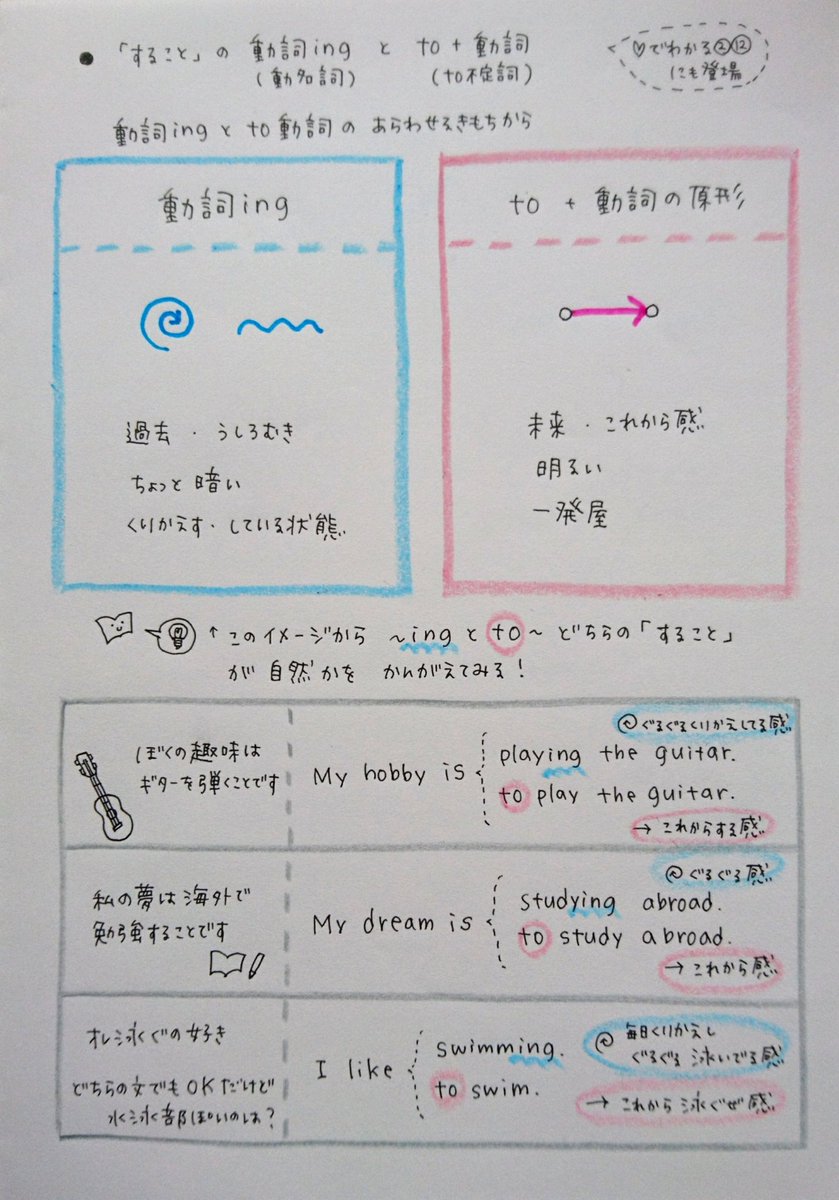 ● 「すること」の 動詞ing と to+動詞
(動名詞) (to不定詞)
♡でわかる②⑫
にも登場
動詞ingとto動詞の あらわせるきもちから
動詞ing
過去・うしろむき
ちょっと暗い
くりかえす・している状態
to + 動詞の原形
未来・これから感
明るい
一発屋
↑このイメージから ~ingとto~ どちらの「すること」
が自然かを かんがえてみる!
ぼくの趣味は
ギターを弾くことです
My hobby is
ぐるぐるくりかえしてる感
playing the guitar.
to play the guitar.
→ これからする感
私の夢は海外で
勉強することです
My dream is
ぐるぐる感
studying abroad.
to study abroad.
→ これから感
オレ泳ぐの好き
どちらの文でもOKだけど
水泳部ぽいのは?
I like
swimming.
to swim.
毎日くりかえし
ぐるぐる 泳いでる感
→ これから泳ぐぜ感